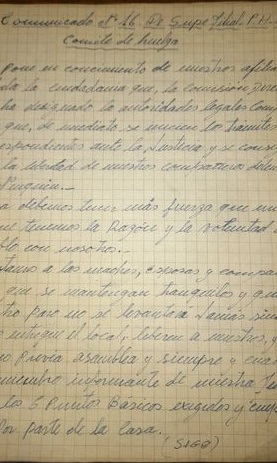 Comunicado nº 16. De Supe Filial. P.H.
Comité de huelga
pone en conocimiento de nuestros afilia
da la ciudadanía que, la comisión
ha designado la autoridades legales com
que, de inmediato se inicien los trámite
espondientes ante la Justicia y se cons
la libertad de nuestros compañeros deten
a debemos tener más fuerza que nun
que tenemos la Razón y la voluntad
blo con nosotros.-
tamo a las madres, esposas y compañ
que se mantengan tranquilos y que
tro paro no se levantará Jamás sin
se entregue el local, liberen a nuestros,
no Previa asamblea y siempre y cua
miembro informante de nuestra
los 6 Puntos Básicos exigidos y
Por parte de la Casa.
(SIGO)